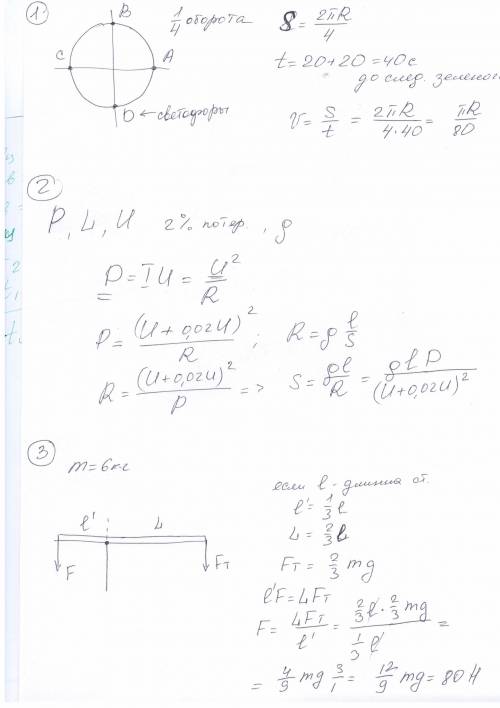 1
B
C A
D ← светофоры
1/4 оборота
S = 2πR/4
t = 20 + 20 = 40 с
до след. зеленого
V = S/t = 2πR/(4·40) = πR/80
2
P, L, U 2% потер. , ρ
P = IU = U²/R
P = (U + 0,02U)²/R ; R = ρ l/S
R = (U + 0,02U)²/P => S = ρl/R = ρlP/(U + 0,02U)²
3
m = 6 кг
l' L
F Fт
если l - длинна от.
l' = 1/3 l
L = 2/3 l
Fт = 2/3 mg
l'F = LFт
F = LFт/l' = (2/3 l · 2/3 mg)/(1/3 l) =
= 4/9 mg 3/1 = 12/9 mg = 80 Н